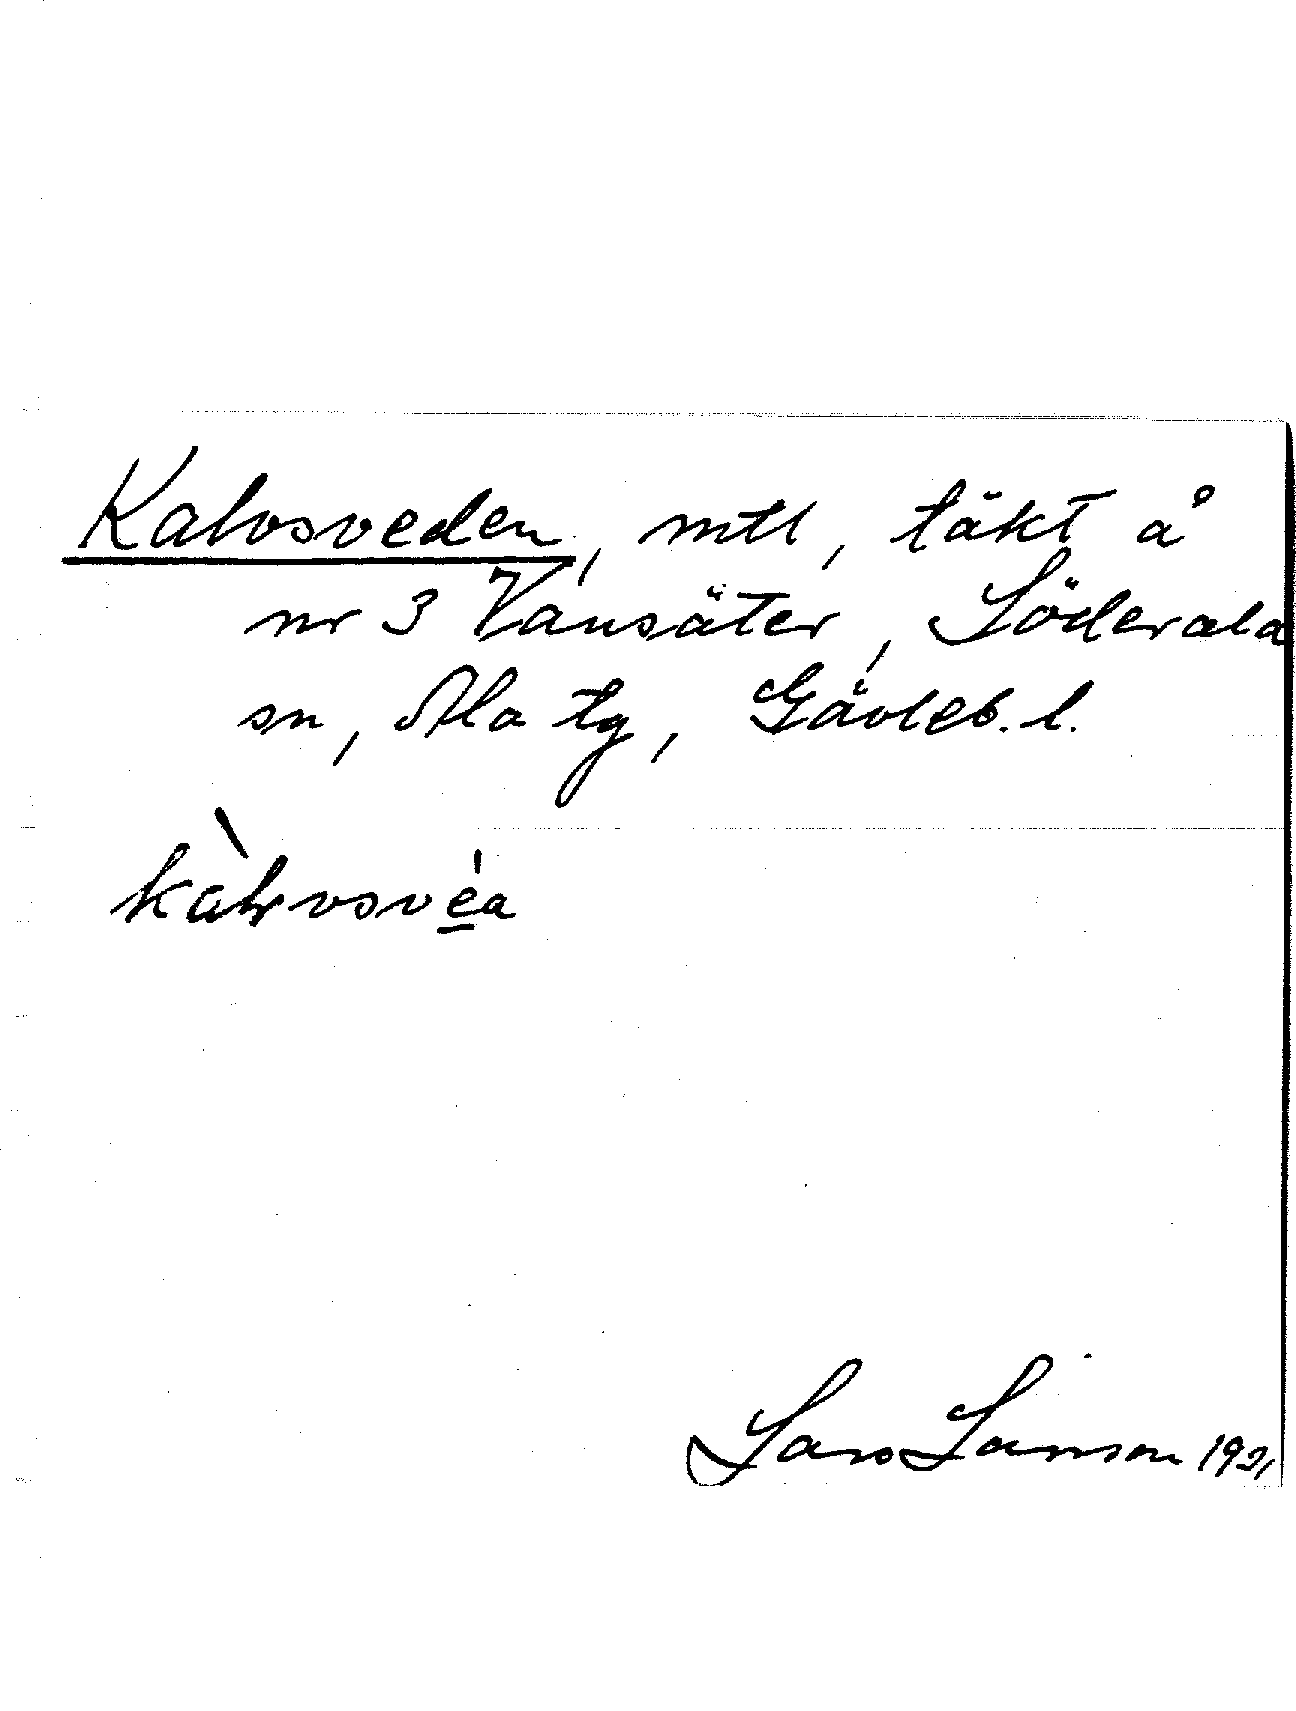 Kalvsveden, mtl, täkt å
nr 3 Vansäter, Söderala
sn, Ala tg, Gävleb. l.
kàlvsve̲a
Lars Länson 1921